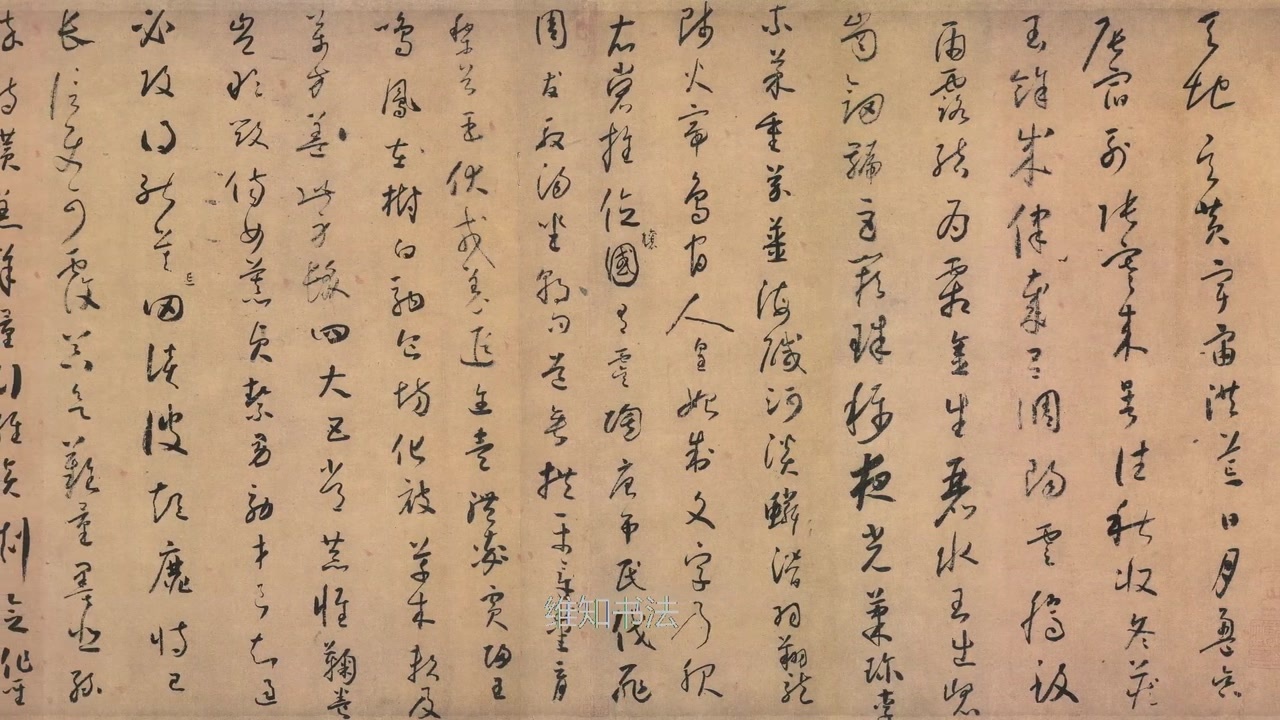 天地玄黄宇宙洪荒日月盈昃
辰宿列張寒来暑往秋收冬藏
閏餘成律歲呂調陽雲騰致
雨露結為霜金生麗水玉出崑
岡劍號巨闕珠稱夜光菓珍李
柰菜重芥薑海鹹河淡鱗潛羽翔龍
師火帝鳥官人皇始制文字乃服
衣裳推位讓國有虞陶唐弔民伐罪
周發殷湯坐朝問道垂拱平章愛育
黎首臣伏戎羌遐邇壹體率賓歸王
鳴鳳在樹白駒食場化被草木賴及
萬方蓋此身髮四大五常恭惟鞠養
豈敢毀傷女慕貞絜男效才良知過
必改得能莫忘罔談彼短靡恃己
長信使可覆器欲難量墨悲絲
詩讚羔羊景行維賢剋念作聖
维知书法